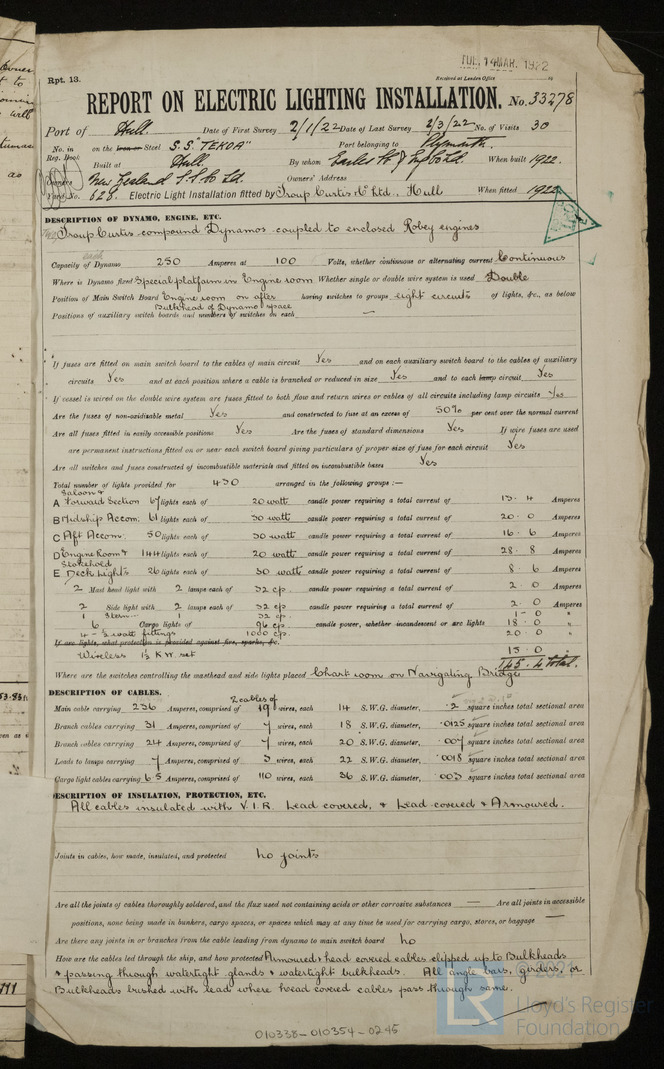 TUE. 14 MAR. 1922
Rpt. 13.
Received at London Office
REPORT ON ELECTRIC LIGHTING INSTALLATION. No. 33278
Port of Hull. Date of First Survey 2/1/22 Date of Last Survey 2/3/22 No. of Visits 30
No. in Reg. Book on the Iron or Steel S.S. "TEKOA" Port belonging to Plymouth.
Built at Hull. By whom Earles When built 1922.
Owners New Zealand S.S. Co Ltd. Owners' Address
Yard No. 628. Electric Light Installation fitted by Troup Curtis & Co Ltd, Hull When fitted 1922
DESCRIPTION OF DYNAMO, ENGINE, ETC.
Two Troup Curtis compound Dynamos coupled to enclosed Robey engines
each
Capacity of Dynamo 250 Amperes at 100 Volts, whether continuous or alternating current Continuous
Where is Dynamo fixed Special platform in Engine room Whether single or double wire system is used Double
Position of Main Switch Board Engine room on after having switches to groups eight circuits of lights, &c., as below
Bulkhead of Dynamo space
Positions of auxiliary switch boards and numbers of switches on each —
If fuses are fitted on main switch board to the cables of main circuit Yes and on each auxiliary switch board to the cables of auxiliary
circuits Yes and at each position where a cable is branched or reduced in size Yes and to each lamp circuit Yes
If vessel is wired on the double wire system are fuses fitted to both flow and return wires or cables of all circuits including lamp circuits Yes
Are the fuses of non-oxidizable metal Yes and constructed to fuse at an excess of 50% per cent over the normal current
Are all fuses fitted in easily accessible positions Yes Are the fuses of standard dimensions Yes If wire fuses are used
are permanent instructions fitted on or near each switch board giving particulars of proper size of fuse for each circuit Yes
Are all switches and fuses constructed of incombustible materials and fitted on incombustible bases Yes
Total number of lights provided for 430 arranged in the following groups :—
Saloon &
A Forward Section 67 lights each of 20 watt candle power requiring a total current of 13.4 Amperes
B Midship Accom: 61 lights each of 30 watt candle power requiring a total current of 20.0 Amperes
C Aft Accom: 50 lights each of 30 watt candle power requiring a total current of 16.6 Amperes
D Engine Room & 144 lights each of 20 watt candle power requiring a total current of 28.8 Amperes
Stokehold
E Deck Lights 26 lights each of 30 watt candle power requiring a total current of 8.6 Amperes
2 Mast head light with 2 lamps each of 32 cp candle power requiring a total current of 2.0 Amperes
2 Side light with 2 lamps each of 32 cp candle power requiring a total current of 2.0 Amperes
1 Stern 1 32 cp 1.0 "
6 Cargo lights of 96 cp candle power, whether incandescent or arc lights 18.0 "
4 - ½ watt fittings 1000 cp. 20.0 "
If arc lights, what protection is provided against fire, sparks, &c.
Wireless 1½ KW set 15.0
145.4 total.
Where are the switches controlling the masthead and side lights placed Chart room on Navigating Bridge
DESCRIPTION OF CABLES.
2 cables of
Main cable carrying 236 Amperes, comprised of 19 wires, each 14 S.W.G. diameter, .2 square inches total sectional area
Branch cables carrying 31 Amperes, comprised of 7 wires, each 18 S.W.G. diameter, .0125 square inches total sectional area
Branch cables carrying 24 Amperes, comprised of 7 wires, each 20 S.W.G. diameter, .007 square inches total sectional area
Leads to lamps carrying 7 Amperes, comprised of 3 wires, each 22 S.W.G. diameter, .0018 square inches total sectional area
Cargo light cables carrying 6.5 Amperes, comprised of 110 wires, each 36 S.W.G. diameter, .003 square inches total sectional area
DESCRIPTION OF INSULATION, PROTECTION, ETC.
All cables insulated with V.I.R. Lead covered, & Lead covered & Armoured.
Joints in cables, how made, insulated, and protected no joints
Are all the joints of cables thoroughly soldered, and the flux used not containing acids or other corrosive substances — Are all joints in accessible
positions, none being made in bunkers, cargo spaces, or spaces which may at any time be used for carrying cargo, stores, or baggage —
Are there any joints in or branches from the cable leading from dynamo to main switch board no
How are the cables led through the ship, and how protected Armoured & Lead covered cables clipped up to Bulkheads
& passing through watertight glands & watertight bulkheads. All angle bars, girders, or
Bulkheads bushed with lead where Lead covered cables pass through same.
© 2021
LR
Lloyd's Register
Foundation
010338-010354-0245